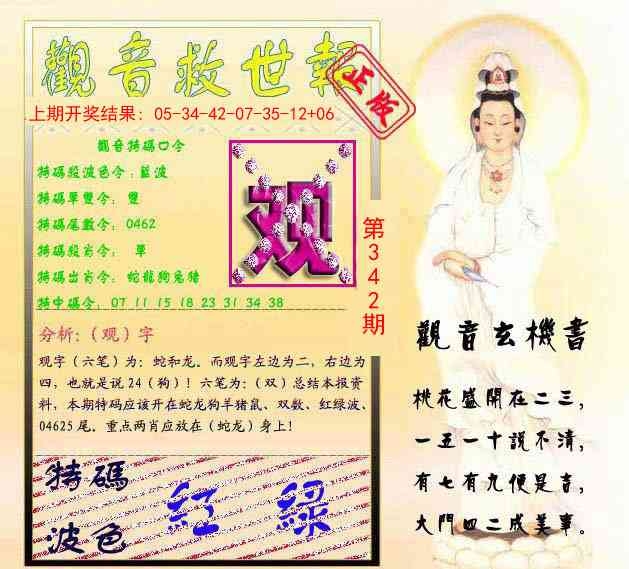 觀音救世報
正版
上期开奖结果：05-34-42-07-35-12+06
觀音特碼口令
特碼殺波色令：藍波
特碼單雙令： 雙
特碼尾數令： 0462
特碼殺肖令： 單
特碼出肖令： 蛇龍狗兔豬
特中碼令： 07 11 15 18 23 31 34 38
观
第342期
分析：（观）字
观字（六笔）为：蛇和龙。而观字左边为二，右边为
四，也就是说24（狗）！六笔为：（双）总结本报资
料，本期特码应该开在蛇龙狗羊猪鼠、双数、红绿波、
04625尾。重点两肖应放在（蛇龙）身上！
特碼
波色
紅 綠
觀音玄機書
桃花盛開在二三，
一五一十說不清，
有七有九便是吉，
大門四二成美事。